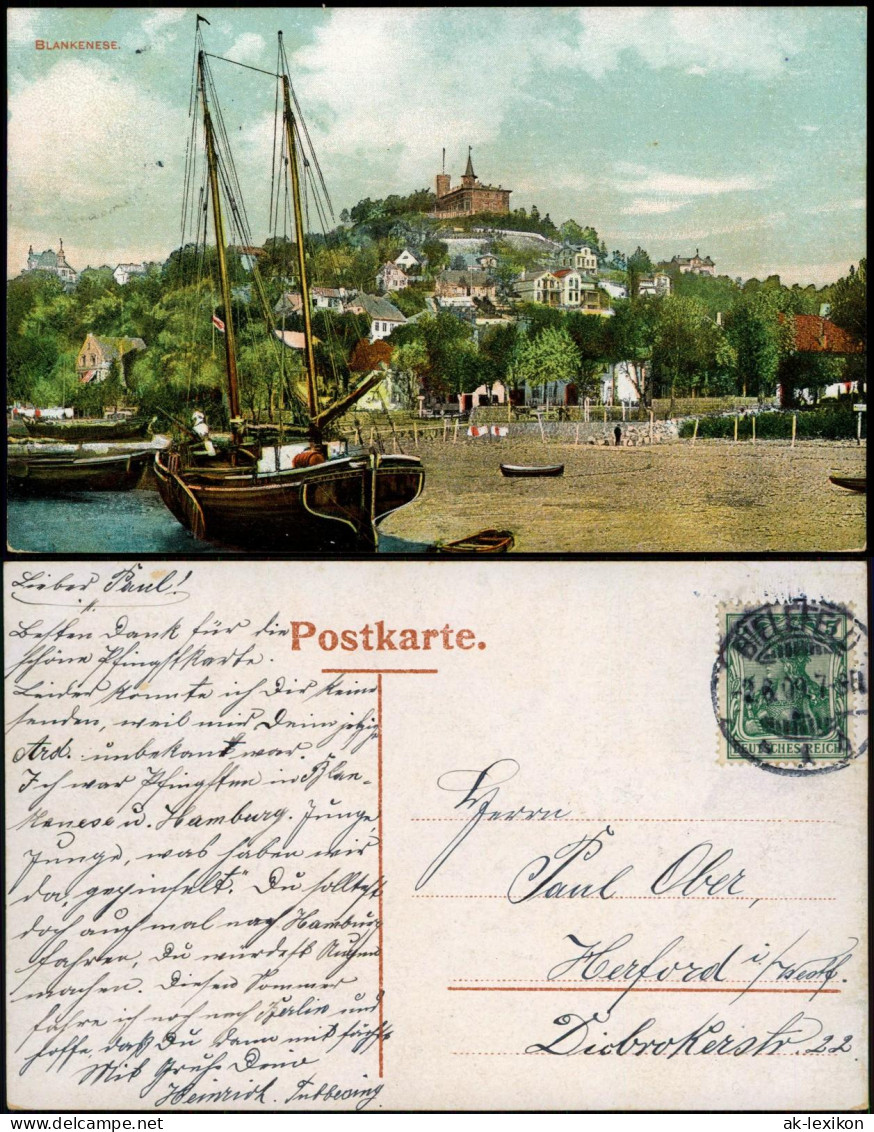 BLANKENESE.
Lieber Paul!
Besten Dank für die
schöne Pfingstkarte.
Leider konnte ich Dir keine
senden, weil mir Deine jetzige
Ard. unbekannt war.
Ich war Pfingsten in Blan-
kenese u. Hamburg. Junge,
Junge, was haben wir
da „gepinselt“. Du solltest
doch auch mal nach Hamburg
fahren, Du würdest Augen
machen. Diesen Sommer
fahre ich noch nach Berlin und
hoffe, daß Du dann mit
Mit Gruß Dein
Heinrich
Postkarte.
BIELEFELD
DEUTSCHES REICH
Herrn
Paul Ober,
Herford i/Westf.
Diebrokerstr. 22.
ak-lexikon